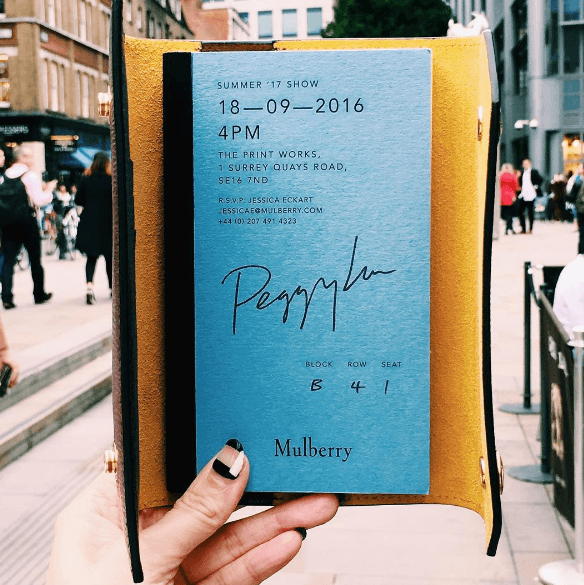 SUMMER '17 SHOW
18—09—2016
4PM
THE PRINT WORKS,
1 SURREY QUAYS ROAD,
SE16 7ND
R.S.V.P. JESSICA ECKART
JESSICAE@MULBERRY.COM
+44 (0) 207 491 4323
BLOCK ROW SEAT
B 4 1
Mulberry